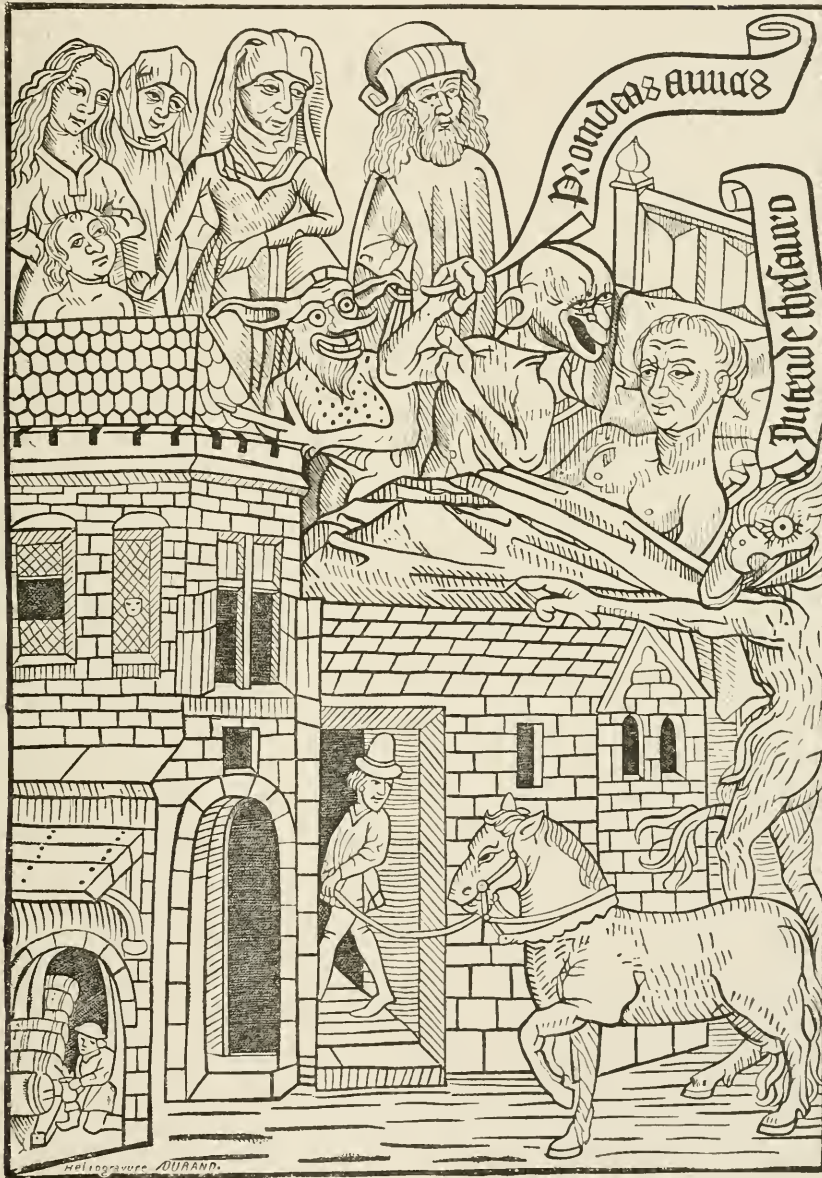 Prouideas amicis
Intende thesauro
Heliogravure DURAND.